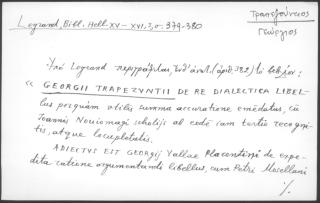 Legrand, Bibl. Hell. XV–XVI, 3, σ. 379-380
Τραπεζούντιος
Γεώργιος
Ὑπὸ Legrand περιγράφεται (ἀριθ. 382) τὸ βιβλίον:
« GEORGII TRAPEZVNTII DE RE DIALECTICA LIBEL-
lus posquam utilis summa accuratione emēdatus, cū
Joannis Nouiomagi scholijs ab eodē iam tertio recogni-
tis, atque locupletatis.
ADIECTVS EST GEORGIJ Vallae Placentini de expe-
dita ratione argumentandi libellus, cum Petri Mosellani
·/.